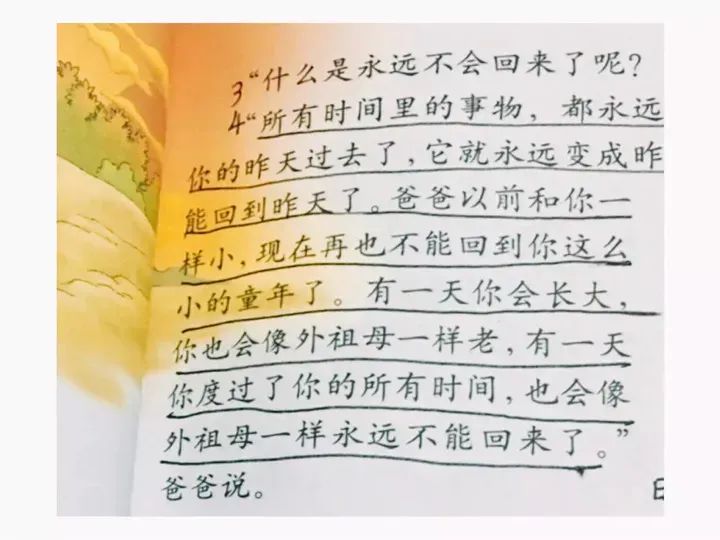 3“什么是永远不会回来了呢？
4“所有时间里的事物，都永远
你的昨天过去了，它就永远变成昨
能回到昨天了。爸爸以前和你一
样小，现在再也不能回到你这么
小的童年了。有一天你会长大，
你也会像外祖母一样老，有一天
你度过了你的所有时间，也会像
外祖母一样永远不能回来了。”
爸爸说。